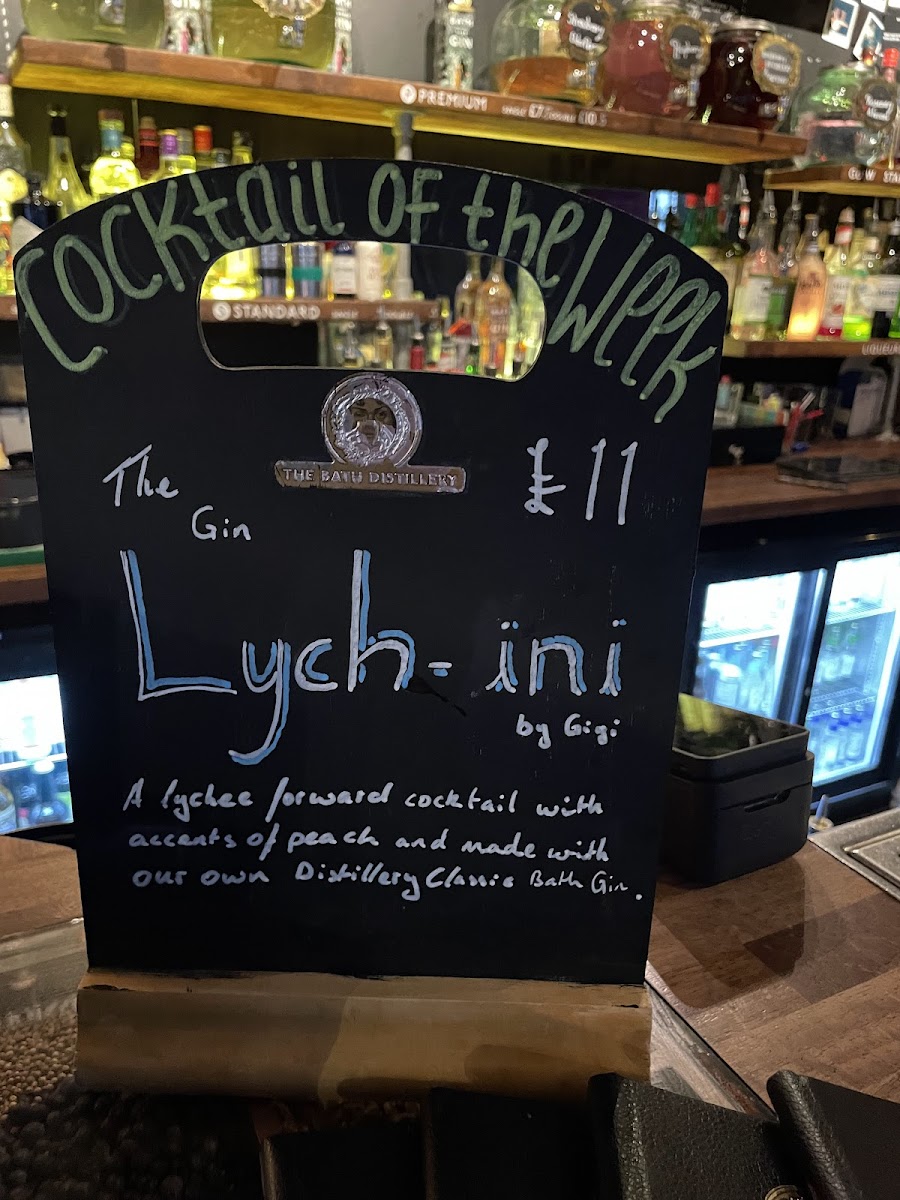 PREMIUM SINGLE £7 / DOUBLE £10.5
Cocktail of the Week
STANDARD
THE BATH DISTILLERY
The
£11
Gin
Lych-ini
by Gigi
A lychee forward cocktail with
accents of peach and made with
our own Distillery Classic Bath Gin.